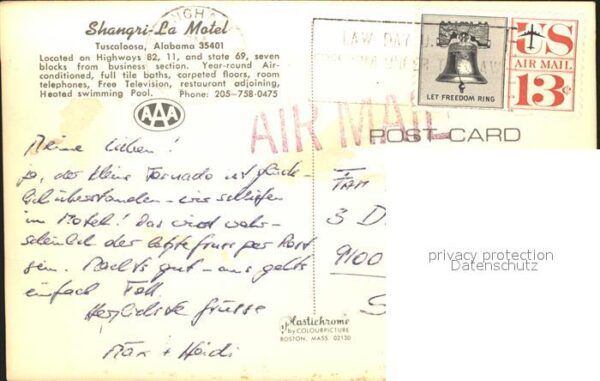 Shangri-La Motel
Tuscaloosa, Alabama 35401
Located on Highways 82, 11, and state 69, seven
blocks from business section. Year-round Air-
conditioned, full tile baths, carpeted floors, room
telephones, Free Television, restaurant adjoining,
Heated swimming Pool. Phone: 205-758-0475
AAA
LAW DAY U.S.
LET FREEDOM RING
US
AIR MAIL
13c
AIR MAIL
POST-CARD
Meine Lieben!
Ja, der kleine Tornado ist glück-
lich überstanden - wir schliefen
im Motel! Das wird wahr-
scheinlich der letzte Gruss per Post
sein. Macht's gut - uns geht's
einfach toll.
Herzlichste Grüsse
Max + Heidi
Fam
3 D
9100
S
Plastichrome
by COLOURPICTURE
BOSTON, MASS. 02130
privacy protection
Datenschutz